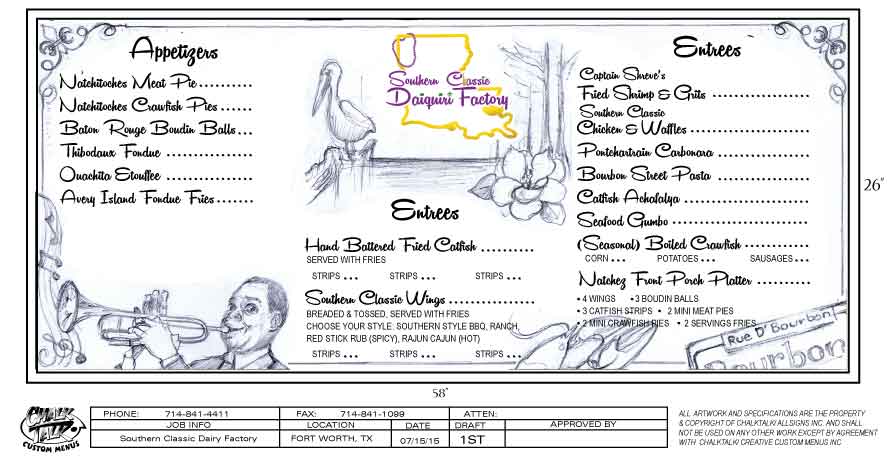 Appetizers
Natchitoches Meat Pie ..........
Natchitoches Crawfish Pies ..........
Baton Rouge Boudin Balls ...
Thibodaux Fondue ..............
Ouachita Etouffee ..............
Avery Island Fondue Fries .......
Southern Classic
Daiquiri Factory
Entrees
Hand Battered Fried Catfish ..........
SERVED WITH FRIES
STRIPS ... STRIPS ... STRIPS ...
Southern Classic Wings ................
BREADED & TOSSED, SERVED WITH FRIES
CHOOSE YOUR STYLE: SOUTHERN STYLE BBQ, RANCH,
RED STICK RUB (SPICY), RAJUN CAJUN (HOT)
STRIPS ... STRIPS ... STRIPS ...
Entrees
Captain Shreve's
Fried Shrimp & Grits ..................
Southern Classic
Chicken & Waffles ......................
Pontchartrain Carbonara .................
Bourbon Street Pasta ..................
Catfish Achafalya .......................
Seafood Gumbo .........................
(Seasonal) Boiled Crawfish ............
CORN ... POTATOES ... SAUSAGES ...
Natchez Front Porch Platter ..........
• 4 WINGS • 3 BOUDIN BALLS
• 3 CATFISH STRIPS • 2 MINI MEAT PIES
• 2 MINI CRAWFISH PIES • 2 SERVINGS FRIES
Rue D' Bourbon
Bourbon
26"
58"
CHALK TALK!
CUSTOM MENUS
PHONE: 714-841-4411 FAX: 714-841-1099 ATTEN:
JOB INFO LOCATION DATE DRAFT APPROVED BY
Southern Classic Dairy Factory FORT WORTH, TX 07/15/15 1ST
ALL ARTWORK AND SPECIFICATIONS ARE THE PROPERTY
& COPYRIGHT OF CHALKTALK/ ALLSIGNS INC. AND SHALL
NOT BE USED ON ANY OTHER WORK EXCEPT BY AGREEMENT
WITH CHALKTALK/ CREATIVE CUSTOM MENUS INC